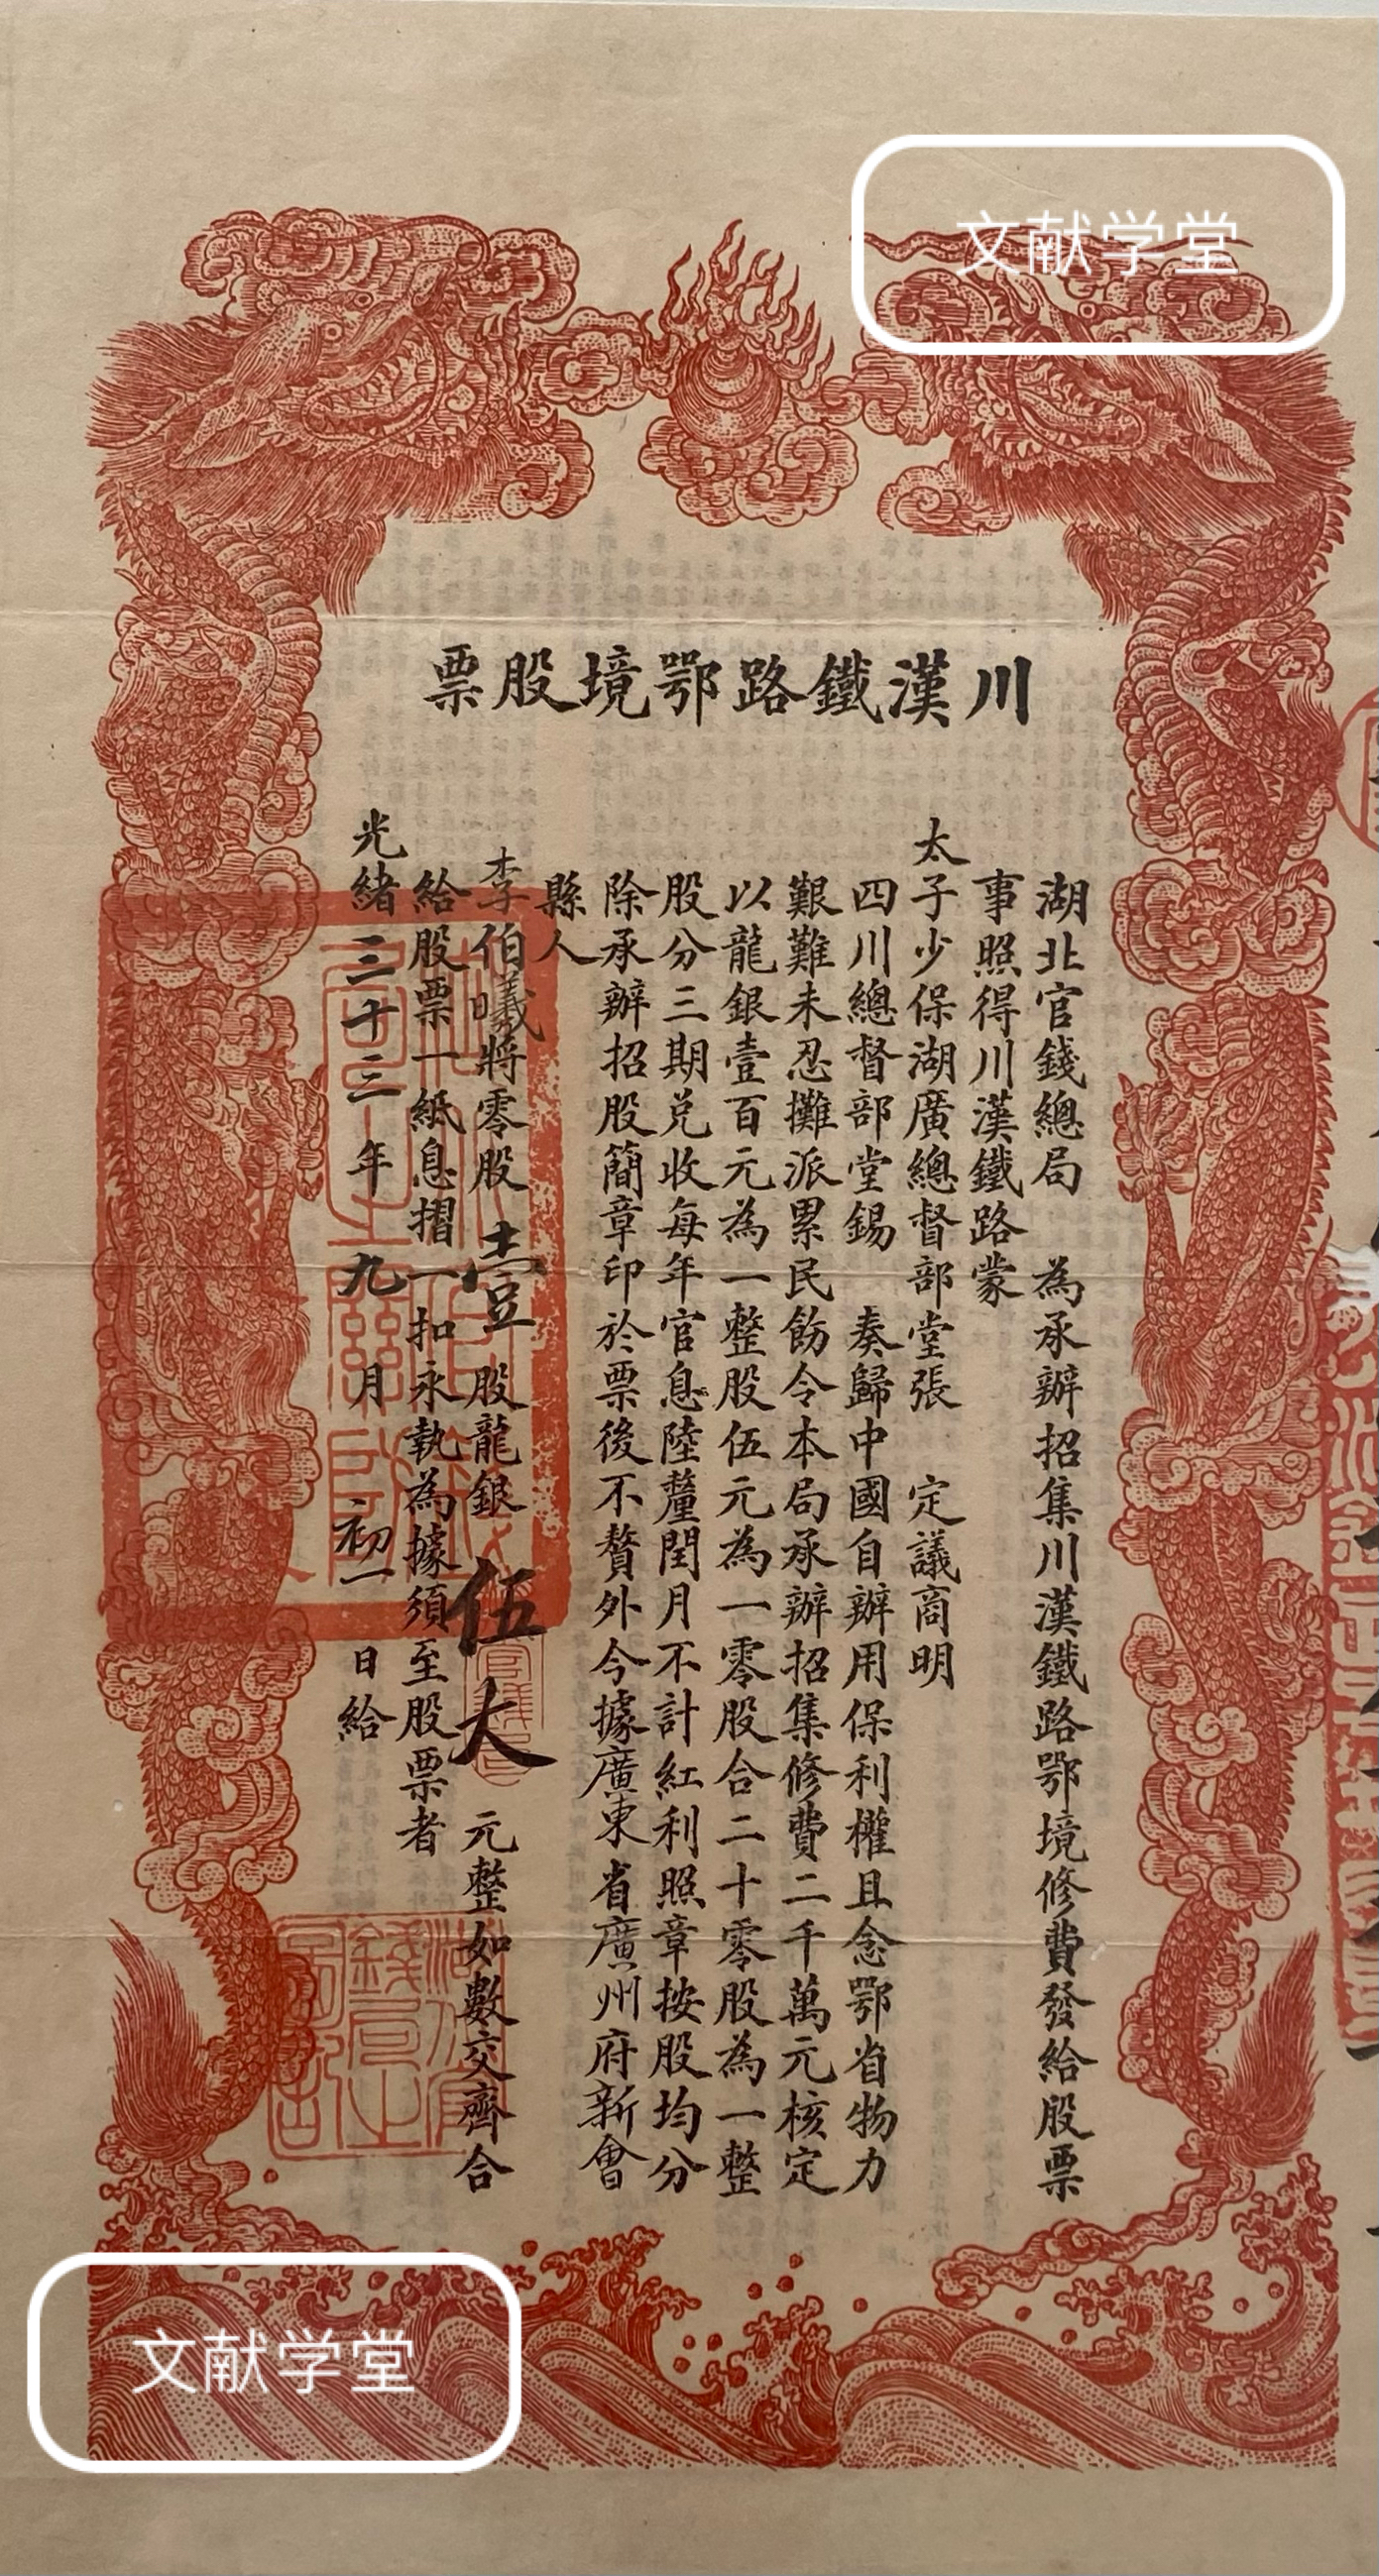 文献学堂
川漢鐵路鄂境股票
湖北官錢總局 為承辦招集川漢鐵路鄂境修費發給股票
事照得川漢鐵路蒙
太子少保湖廣總督部堂張 定議商明
四川總督部堂錫 奏歸中國自辦用保利權且念鄂省物力
艱難未忍攤派累民飭令本局承辦招集修費二千萬元核定
以龍銀壹百元為一整股伍元為一零股合二十零股為一整
股分三期兑收每年官息陸釐閏月不計紅利照章按股均分
除承辦招股簡章印於票後不贅外今據廣東省廣州府新會
縣人
李伯曦將零股壹股龍銀伍大元整如數交齊合
給股票一紙息摺一扣永執為據須至股票者
光緒三十三年九月初一日給
文献学堂